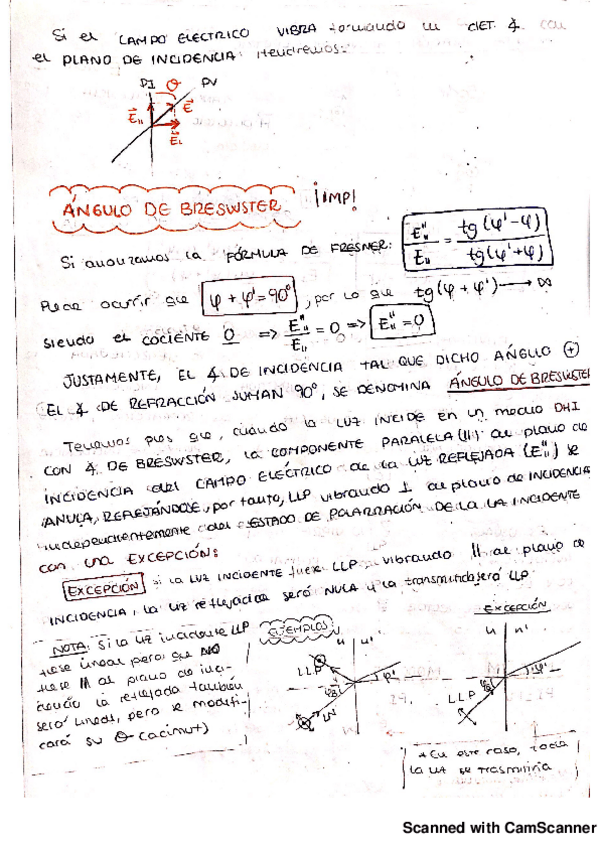 Si el CAMPO ELECTRICO VIBRA formando un CIET. ∡ con
el PLANO DE INCIDENCIA tendremos:
PI θ PV
E⃗ıı E⃗
E⃗⊥
ÁNGULO DE BRESWSTER ¡IMP!
Si analizamos la FÓRMULA DE FRESNER: E"ıı / Eıı = tg(φ'-φ) / tg(φ'+φ)
Puede ocurrir que φ + φ' = 90°, por lo que tg(φ + φ') → ∞
siendo el COCIENTE 0 => E"ıı / Eıı = 0 => E"ıı = 0
JUSTAMENTE, EL ∡ DE INCIDENCIA TAL QUE DICHO ÁNGULO (+)
EL ∡ DE REFRACCIÓN SUMAN 90°, SE DENOMINA ÁNGULO DE BRESWSTER
Tenemos pues que, cuando la LUZ INCIDE EN un medio DHI
CON ∡ DE BRESWSTER, la COMPONENTE PARALELA (II) al plano de
INCIDENCIA del CAMPO ELÉCTRICO de la LUZ REFLEJADA (E"ıı) se
ANULA, REFLEJÁNDOSE, por tanto, LLP vibrando ⊥ al plano de INCIDENCIA
independientemente del ESTADO DE POLARIZACIÓN DE LA LA INCIDENTE
con una EXCEPCIÓN:
EXCEPCIÓN si la LUZ INCIDENTE fuese LLP vibrando II al plano de
INCIDENCIA, la luz reflejada será NULA y la transmitida será LLP.
NOTA: Si la luz incidente LLP
fuese lineal pero que NO
fuese II al plano de inci-
dencia la reflejada también
será lineal, pero se modifi-
cará su θ (acimut)
EJEMPLOS
n n'
LLP
φB
φ'
LN
EXCEPCIÓN
n n'
LLP
φB
φ'
* En este caso, toda
la luz se trasmitiría
Scanned with CamScanner